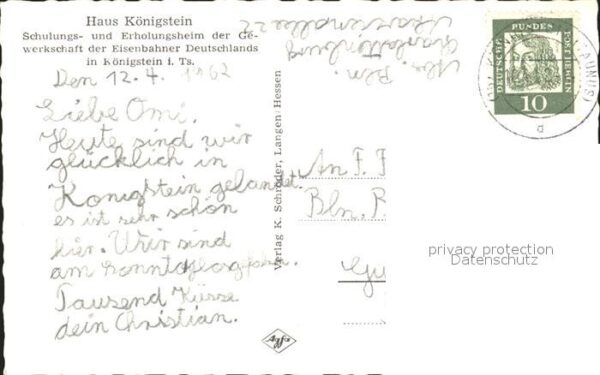 Haus Königstein
Schulungs- und Erholungsheim der Ge-
werkschaft der Eisenbahner Deutschlands
in Königstein i. Ts.
Den 12.4. 1962
Liebe Omi,
Heute sind wir
glücklich in
Königstein gelandet.
es ist sehr schön
hier. Wir sind
am Sonntag losgefahren.
Tausend Küsse
dein Christian.
Verlag K. Schröder, Langen-Hessen
Agfa
Abs. Bln.
Charlottenburg
22
DEUTSCHE BUNDESPOST BERLIN
10
(TAUNUS)
a
An F.
Bln.
privacy protection
Datenschutz